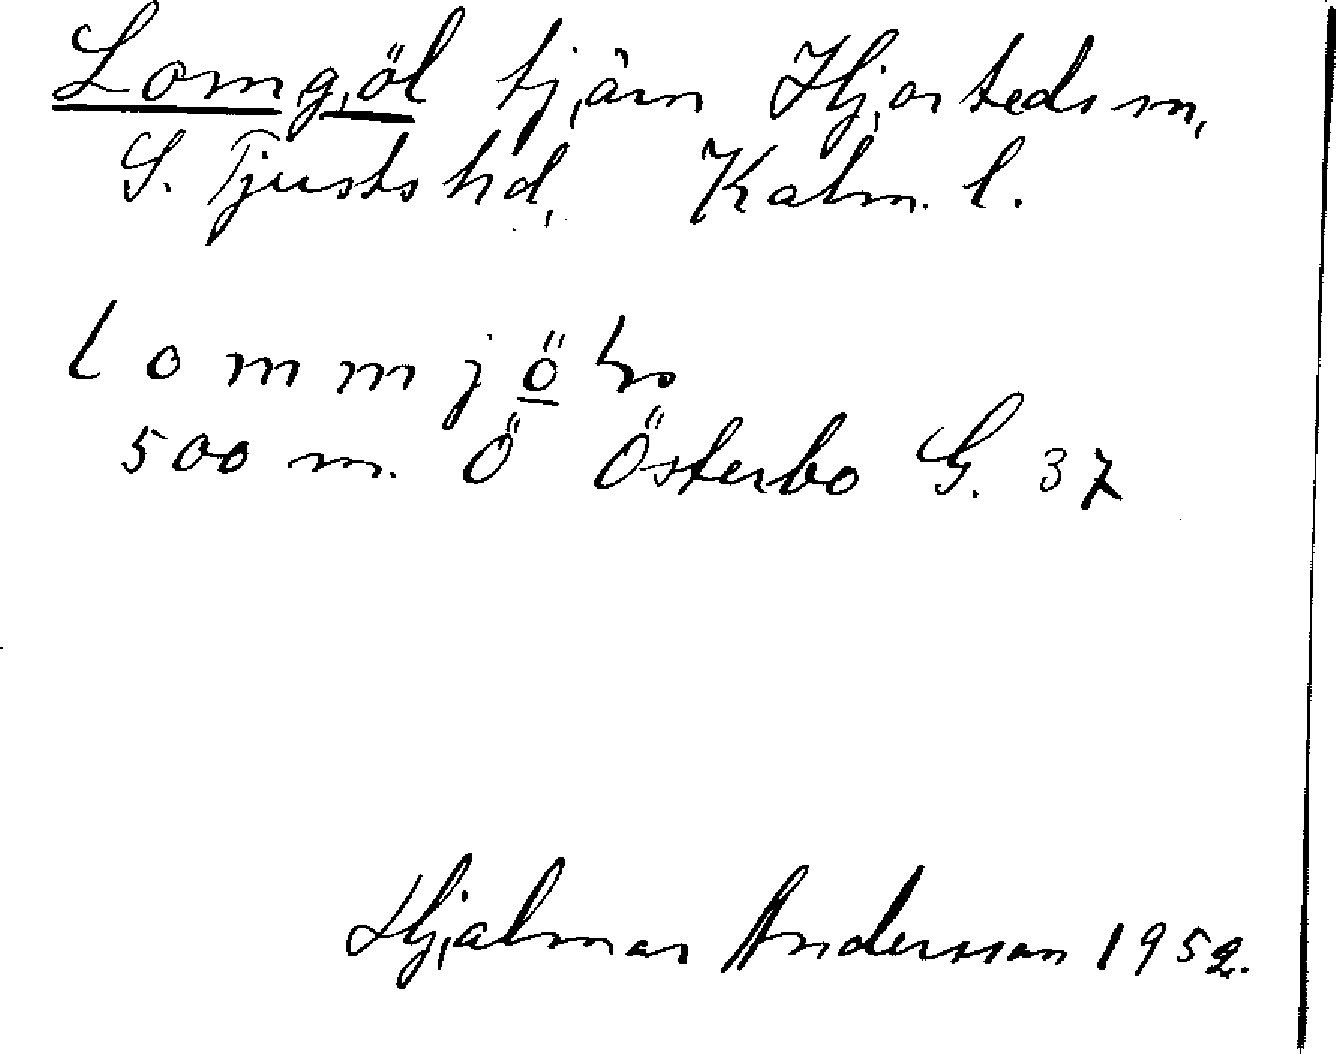 Lomgöl tjärn Hjorteds sn,
S. Tjusts hd, Kalm. l.
lommjö
500 m. Ö Österbo G. 37
Hjalmar Andersson 1952.